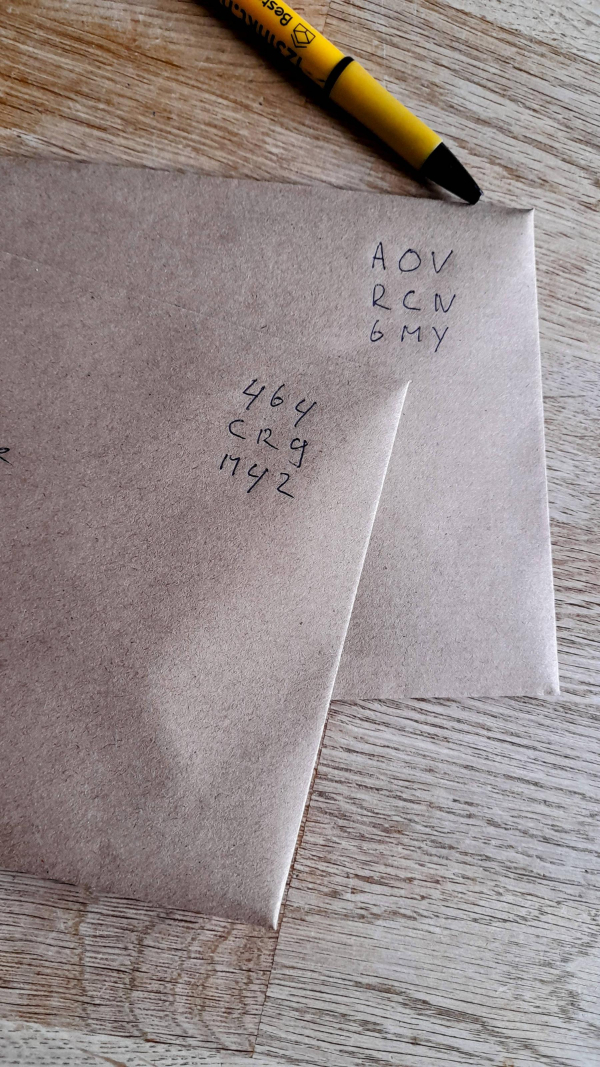 Best
AOV
RCN
6MY
464
CR9
MY2